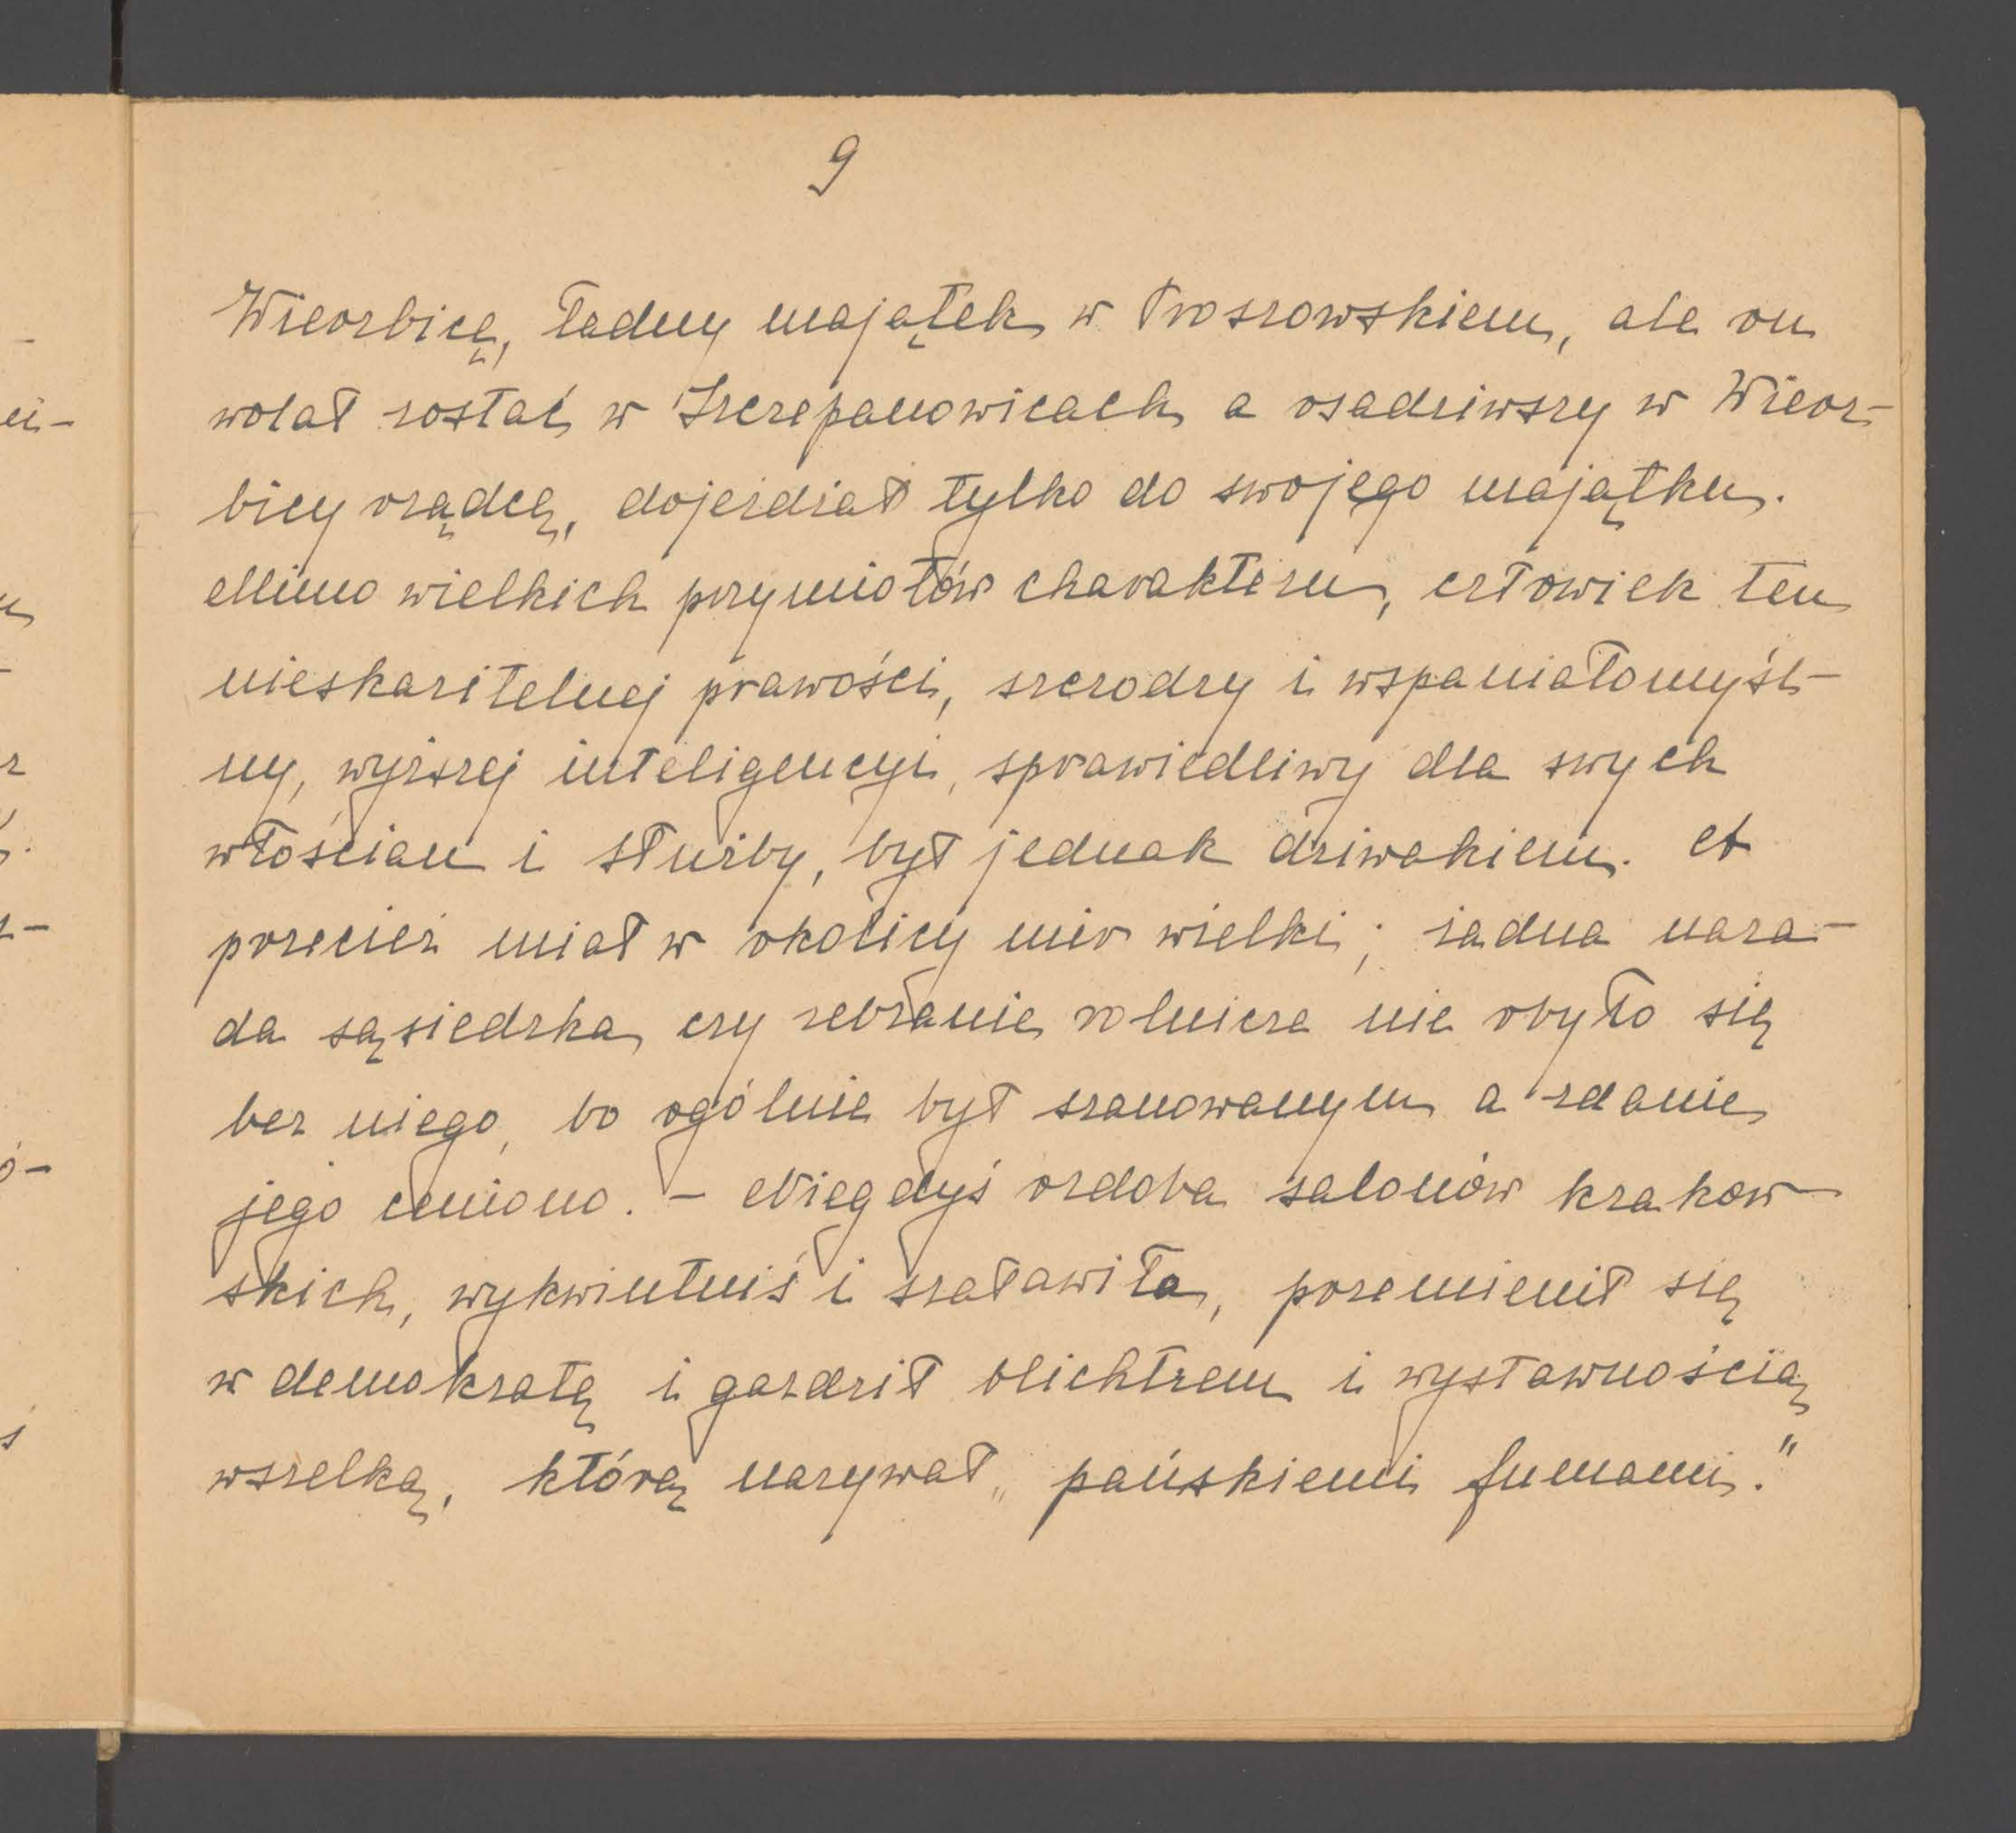 9
Wierzbicę, ładny majątek w Proszowskiem, ale on
wolał zostać w Szczepanowicach a osadziwszy w Wierz-
bicy rządcę, dojeżdżał tylko do swojego majątku.
Mimo wielkich przymiotów charakteru, człowiek ten
nieskazitelnej prawości, szczodry i wspaniałomyśl-
ny, wyższej inteligencyi, sprawiedliwy dla swych
włościan i służby, był jednak dziwakiem. A
przecież miał w okolicy mir wielki; żadna nara-
da sąsiedzka czy zebranie rolnicze nie obyło się
bez niego, bo ogólnie był szanowanym a zdanie
jego ceniono. – Niegdyś ozdoba salonów krakow-
skich, wykwintniś i szaławiła, przemienił się
w demokratę i gardził blichtrem i wystawnością
wszelką, którą nazywał „pańskiemi fumami."